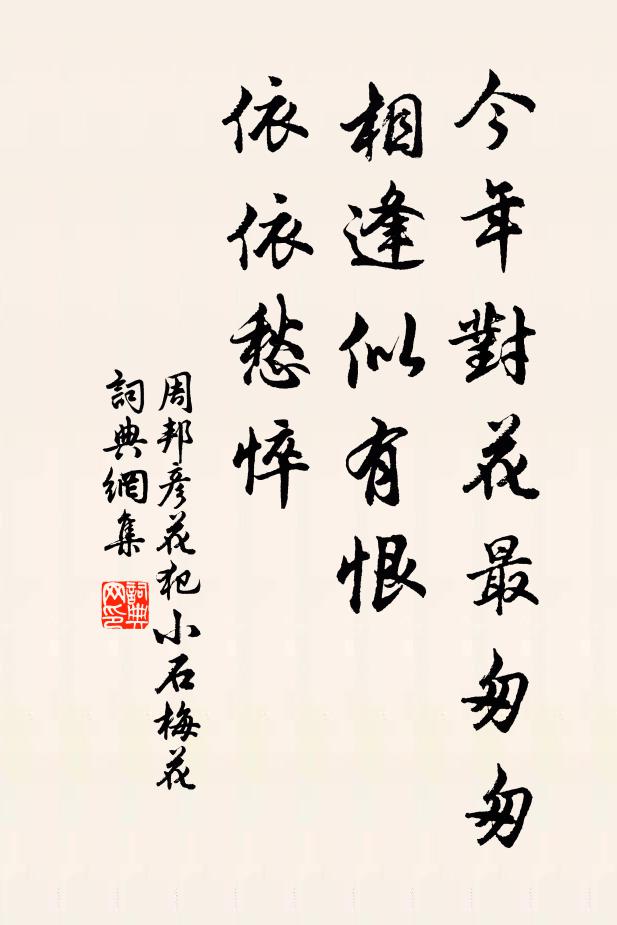 今年對花最匆匆
相逢似有恨
依依愁悴
周邦彥花犯小石梅花
詞典網集
詞典网印